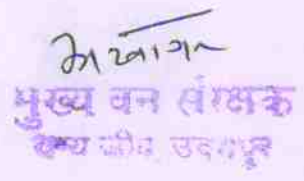 मुख्य वन संरक्षक
वन्य जीव उदयपुर